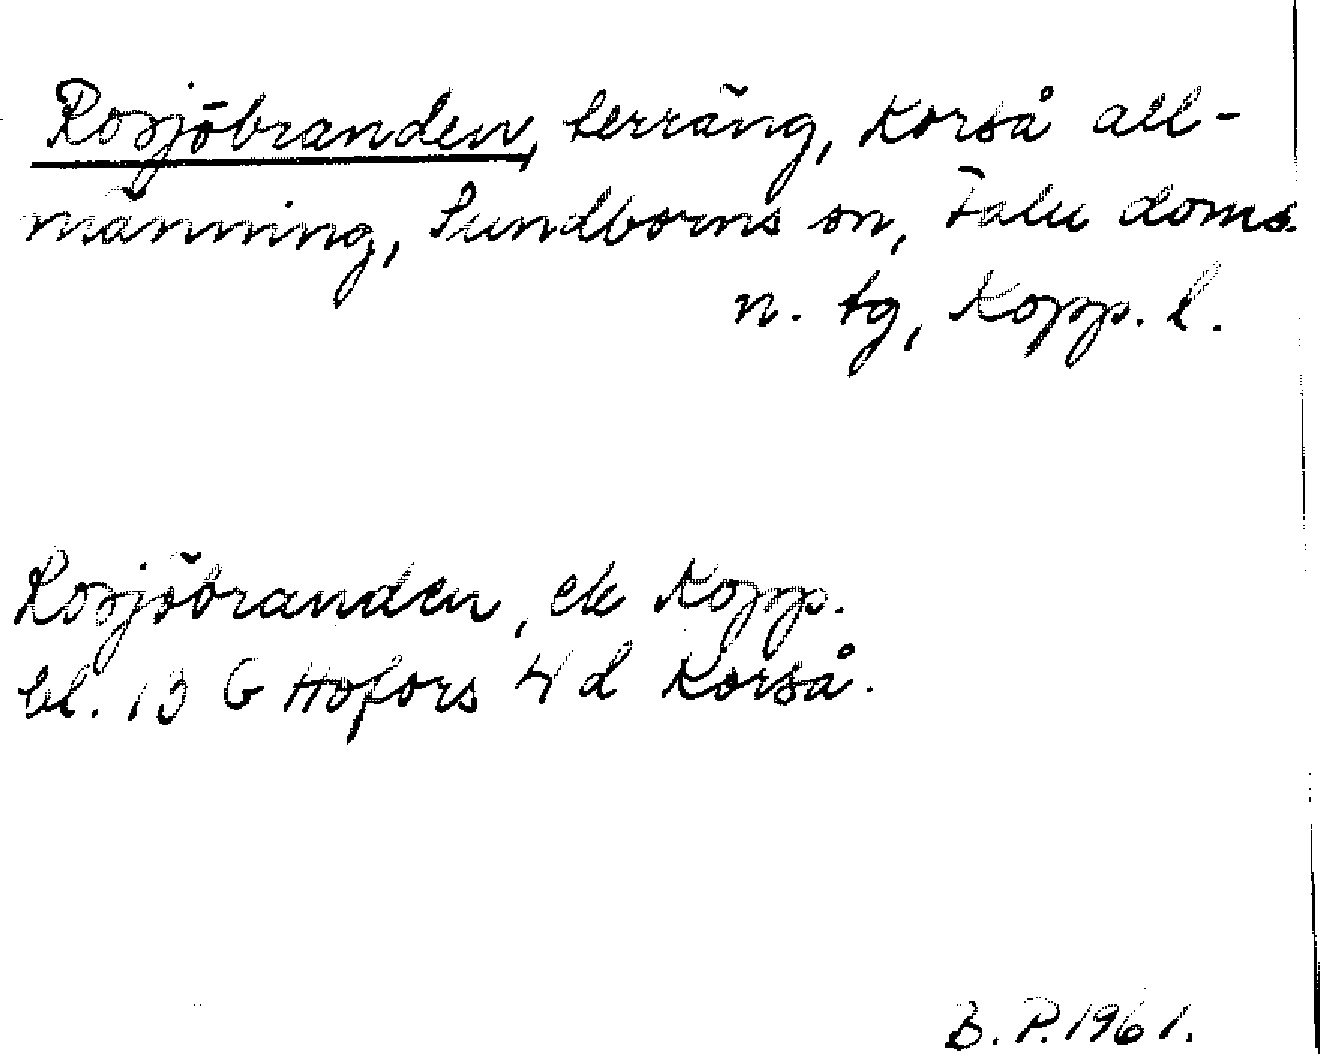 Rosjöbranden, terräng, Korså all-
männing, Sundborns sn, Falu doms.
n. tg, Kopp. l.
Rosjöbranden, ek Kopp.
bl. 13 G Hofors 4 d Korså.
B. P. 1961.